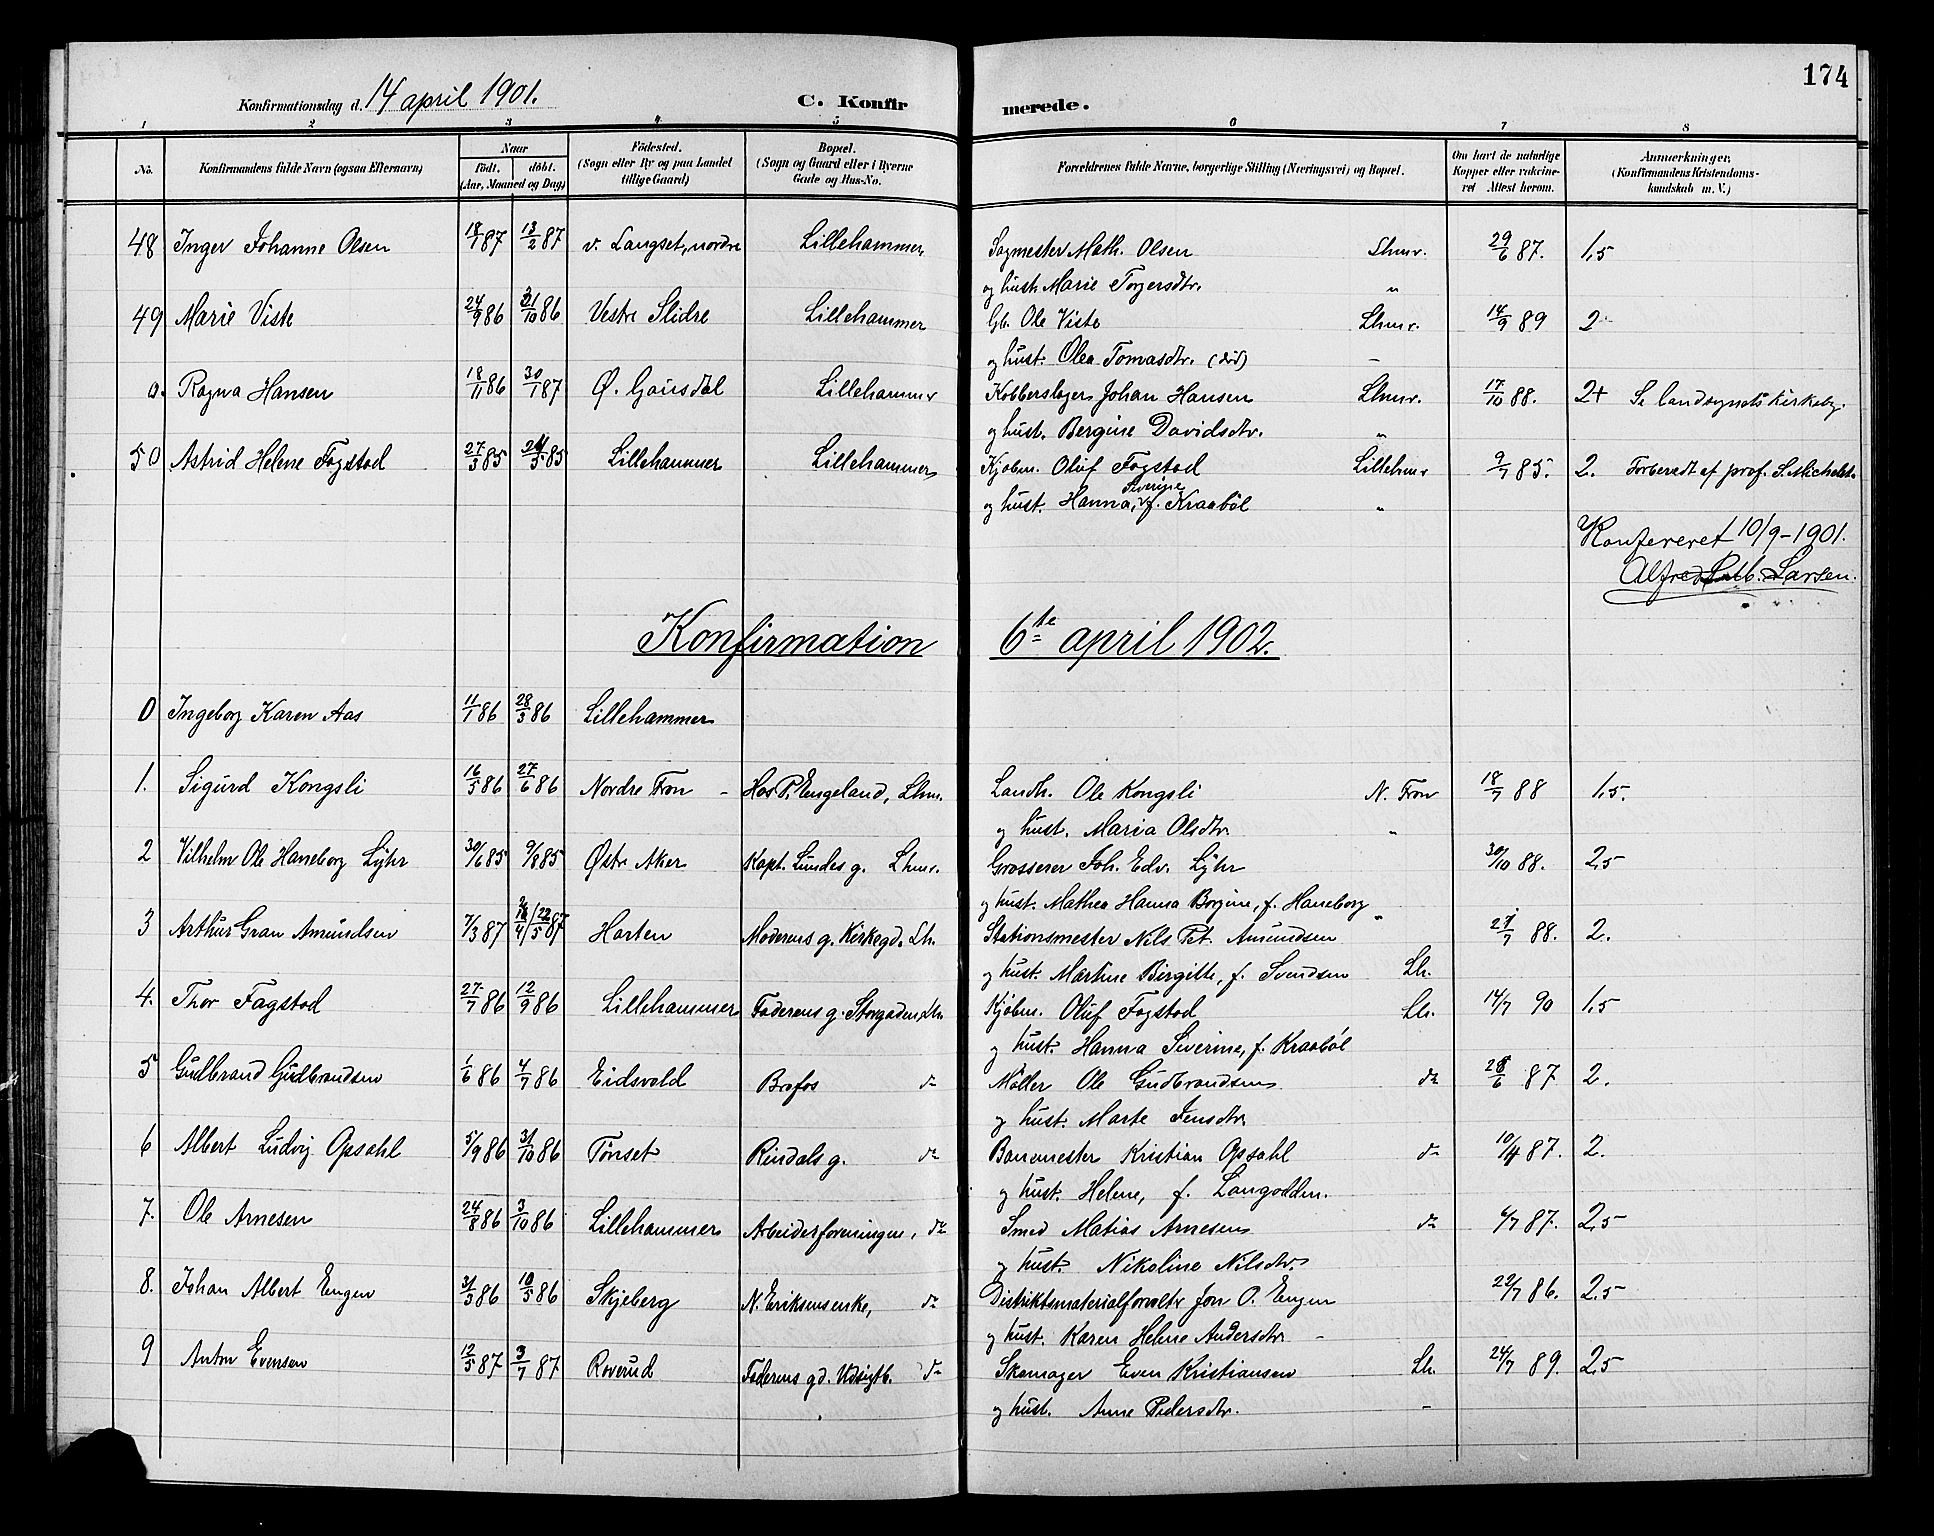 174
Konfirmationsdag d. 14 april 1901. C. Konfirmerede.
1 2 3 4 5 6 7 8
No. Konfirmandens fulde Navn (ogsaa Efternavn) Naar födt. döbt. (Aar, Maaned og Dag) Födested. (Sogn eller By og paa Landet tillige Gaard) Bopæl. (Sogn og Gaard eller i Byerne Gade og Hus-No. Forældrenes fulde Navne, borgerlige Stilling (Næringsvei) og Bopæl. Om havt de naturlige Kopper eller vakcineret Attest herom. Anmærkninger, (Konfirmandens Kristendomskundskab m. V.)
48 Inger Johanne Olsen 18/1 87 13/2 87 v. Langset, nordre Lillehammer Sagmester Math. Olsen Lhmr. 29/6 87. 1,5
og hust. Marie Torgersdtr. "
49 Marie Viste 24/9 86 31/10 86 Vestre Slidre Lillehammer Gb. Ole Viste Lhmr. 14/9 89 2
og hust. Olea Tomasdtr. (död) –
0. Ragna Hansen 18/11 86 30/1 87 Ø. Gausdal Lillehammer Kobberslager Johan Hansen Lhmr. 17/10 88. 2+ Se landsognets kirkebg.
og hust. Bergine Davidsdtr. "
50 Astrid Helene Fagstad 27/3 85 85 Lillehammer Lillehammer Kjøbm. Oluf Fagstad Lillehmr 9/7 85. 2. Forberedt af prof. S. Michelet.
og hust. Hanna Siverine, f. Kraabøl "
Konfereret 10/9-1901.
Alfred Larsen.
Konfirmation 6te april 1902.
0 Ingeborg Karen Aas 11/1 86 28/3 86 Lillehammer
1. Sigurd Kongsli 16/5 86 27/6 86 Nordre Fron – Hos P. Engeland, Lhm. Landh. Ole Kongsli N. Fron 18/7 88 1,5.
og hust. Maria Olsdtr. "
2 Vilhelm Ole Haneborg Lÿhr 30/6 85 9/8 85 Østre Aker Kapt. Lundes g. Lhmr. Grosserer Joh. Edv. Lÿhr 30/10 88. 2,5
og hust. Mathea Hanna Borgine, f. Haneborg "
3 Arthur Gran Amundsen 7/3 87 22/5 87 Horten Moderens g. Kirkegd. Lh. Stationsmester Nils Pet. Amundsen 27/7 88. 2.
og hust. Martine Birgitte, f. Svendsen Lh.
4. Thor Fagstad 27/7 86 12/9 86 Lillehammer Faderens g. Storgaden, Lh. Kjøbm. Oluf Fagstad Lh. 14/7 90 1,5
og hust. Hanna Siverine, f. Kraabøl
5 Gudbrand Gudbrandsen 1/6 86 4/7 86 Eidsvold Brofos do Møller Ole Gudbrandsen do 28/6 87 2.
og hust. Marte Jensdtr.
6 Albert Ludvig Opsahl 5/9 86 31/10 86 Tønset Rindals g. do Banemester Kristian Opsahl do 10/4 87. 2.
og hust. Helene, f. Langodden.
7. Ole Arnesen 24/8 86 3/10 86 Lillehammer Arbeiderforeningen, do Smed Matias Arnesen do 6/7 87. 2,5
og hust. Nikoline Nilsdtr.
8. Johan Albert Engen 31/3 86 10/5 86 Skjeberg N. Eriksens enke, do Distriktsmaterialforvalter Jon O. Engen 22/7 86. 2,5
og hust. Karen Helene Andersdtr. –
9 Anton Evensen 12/5 87 3/7 87 Roverud Faderens gd. Udsigtb. do Skomager Even Kristiansen Lh. 24/7 89. 2,5
og hust. Anne Pedersdtr. –